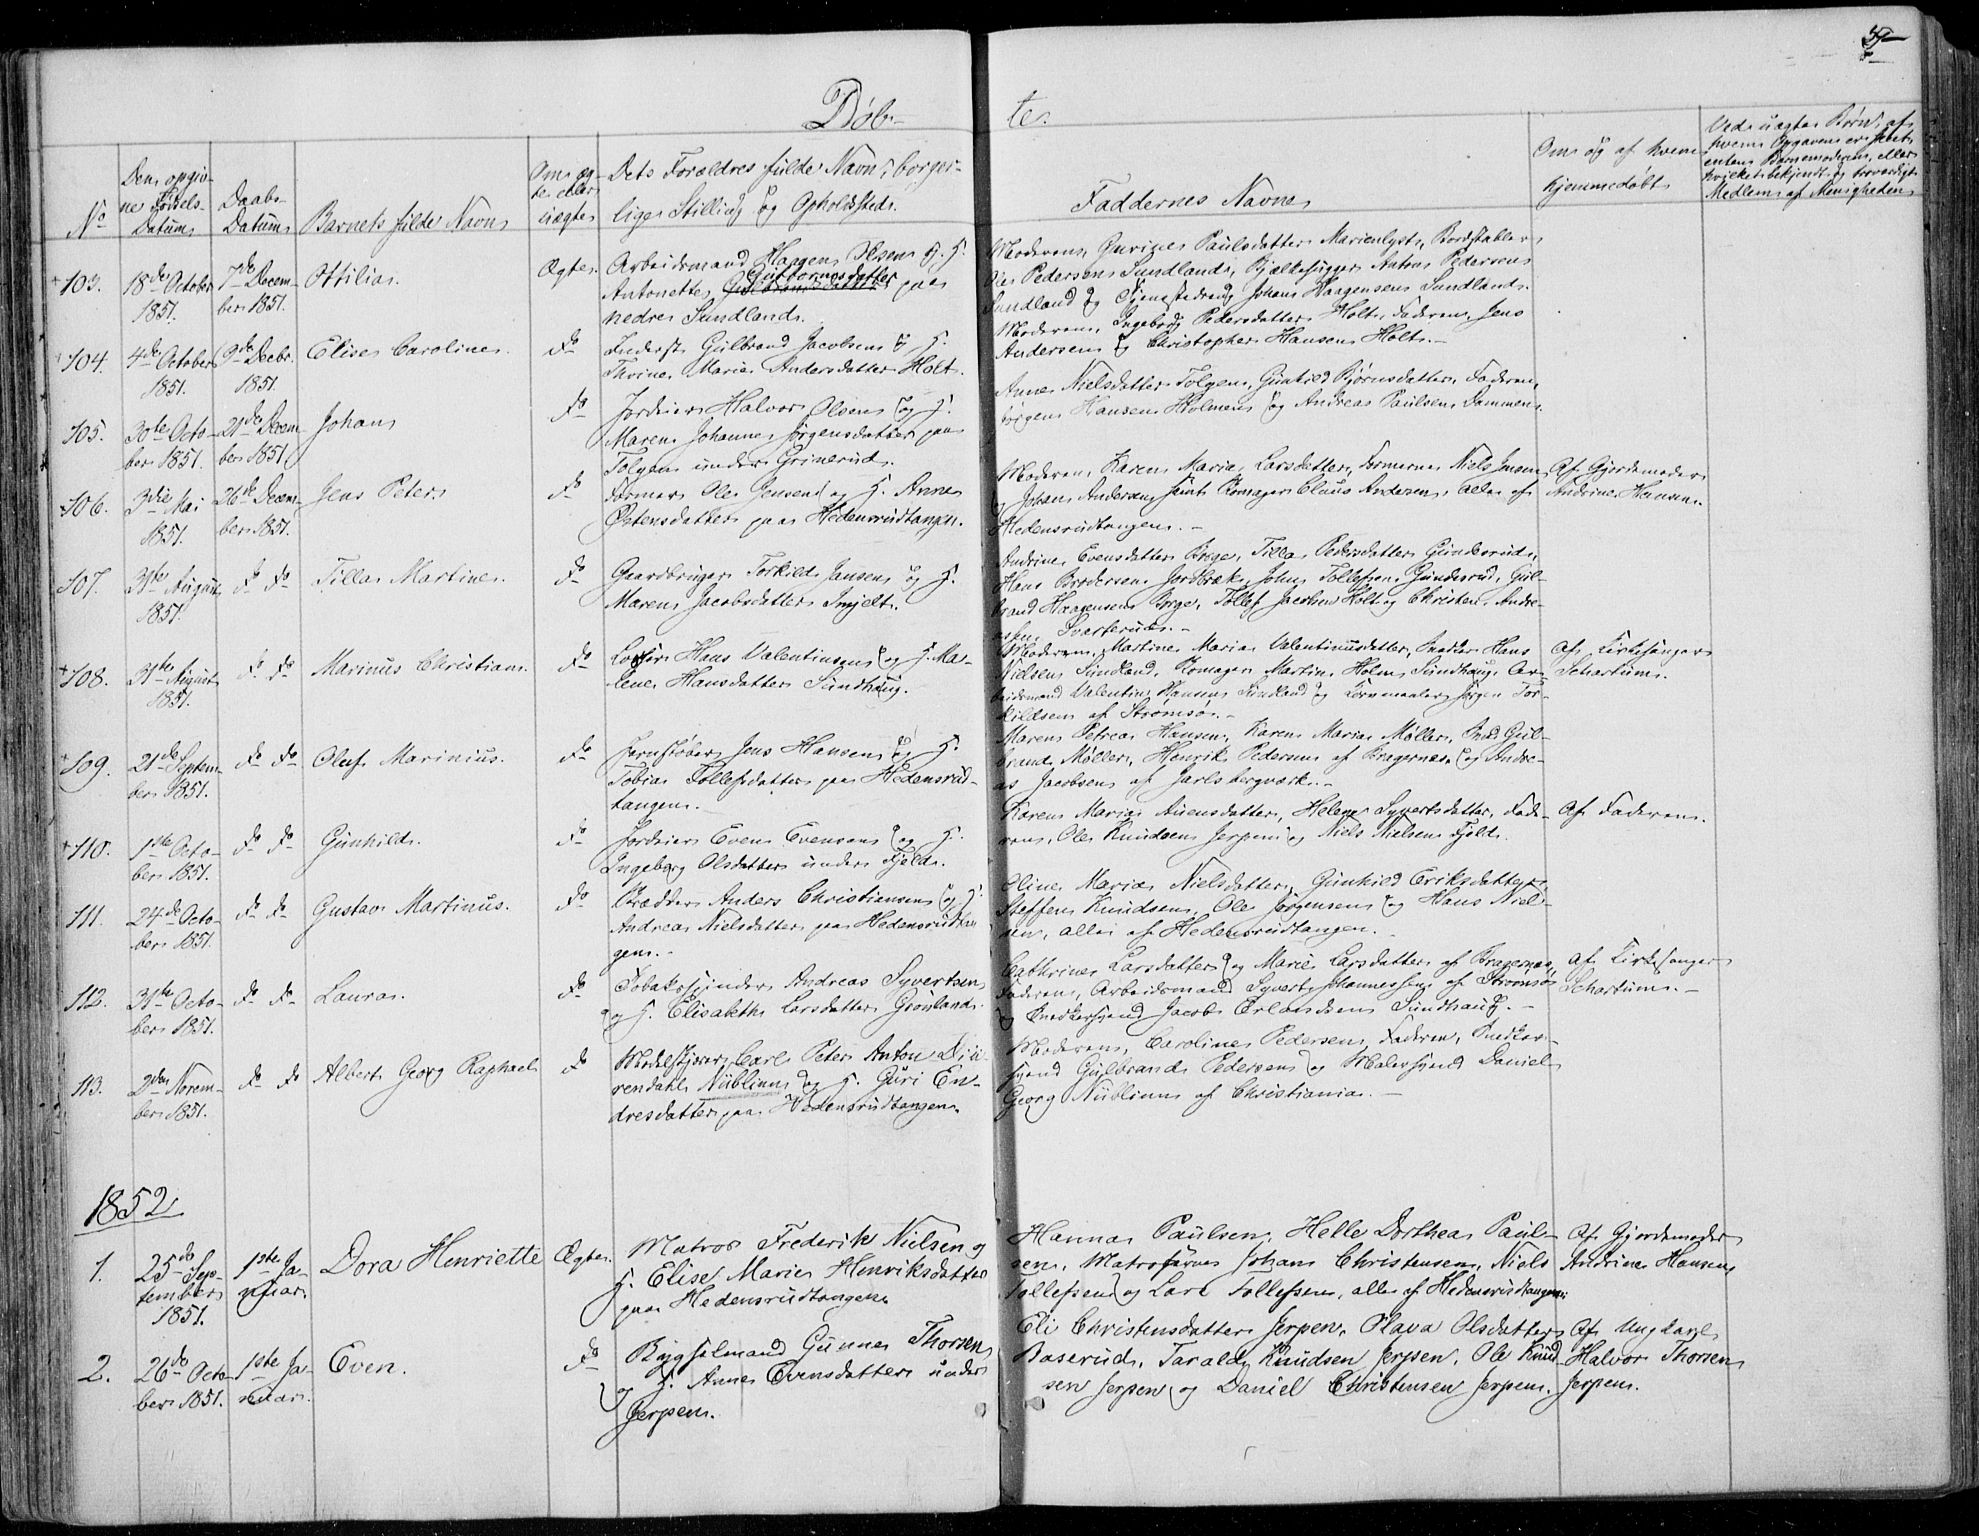 Døb-
te.
No
Den opgiv-
ne Fødsels-
Datum
Daabs
Datum
Barnets fulde Navn
Om æg-
te eller
uægte
Dets Forældres fulde Navn, borger-
lige Stilling og Opholdssted.
Faddernes Navne
Om og af hvem
hjemmedøbt
Ved uægte Børn, af
hvem Opgaven er
entens Barnemoderen, eller
hvilket bekjendt og troværdigt
Medlem af Menigheden
103.
18de October
1851.
7de Decem-
ber 1851.
Ottilia.
Ægte.
Arbeidsmand Haagen Olsen og H.
Guttormsdatter
Antonette paa
nedre Sundland.
Moderen, Gurine Paulsdatter Marienlyst, Bordstabler
Ole Pedersen Sundland, Bjelkehugger Anton Pedersen
Sundland og Tjenestedreng Johan Haagensen Sundland.
104.
4de October
1851.
9de Decbr.
1851.
Elise Caroline.
do
Inderst Gulbrand Jacobsen og H.
Thrine Marie Andersdatter Holt.
Moderen, Ingeborg Pedersdatter Holt, Faderen, Jens
Andersen og Christopher Hansen Holt.-
105.
30te Octo-
ber 1851.
21de Decem-
ber 1851.
Johan
do
Jordeier Halvor Olsen og H.
Maren Johanne Jørgensdatter paa
Tolgen under Grinerud.
Anne Nielsdatter Tolgen, Gunhild Bjørnsdatter, Faderen,
Jørgen Hansen Holmen og Andreas Paulsen Dammen.
106.
3die Mai
1851.
26de Decem-
ber 1851.
Jens Peter
do
Former Ole Jensen og H. Anne
Østensdatter paa Hedensrudtangen.
Moderen, Karen Maria Larsdatter, Formerne Niels Jensen
og Johan Andersen samt Komager Claus Andersen, alle af
Hedensrudtangen.-
Af Gjordemoder
Andrine Hansen.
107.
31te August
1851.
do do
Tilla Martine.
do
Gaardbruger Torkild Jansen og H.
Maren Jacobsdatter Injelt.
Andrine Evensdatter Borge, Tilla Pedersdatter Gunderud,
Hans Brodersen Jordbræk, John Tollefsen Gunderud, Gul-
brand Haagensen Borge, Tollef Jacobsen Holt og Christen Andre-
asen Svarterud.-
108.
31te August
1851.
do do
Marinus Christian.
do
Hans Valentinsen og H. Ma-
lene Hansdatter Sundhaug.
Moderen, Martine Maria Valentinusdatter, Snedker Hans
Nielsen Sundland, Komager Martin Holm Sundhaug, Ar-
beidsmand Valentin Hansen Sundland og Kornmaaler Jørgen Tor-
kildsen af Strømsø.-
Af Kirkesanger
Schartum.
109.
21de Septem-
ber 1851.
do do
Oluf Marinius.
do
Jernstøber Jens Hansen og H.
Tobia Tollefsdatter paa Hedensrud-
tangen.-
Maren Petrea Hansen, Karen Maria Møller, Gul-
brand Møller, Henrik Pedersen af Bragernæs og Andre-
as Jacobsen af Jarlsbergværk.-
110.
1ste Octo-
ber 1851.
do do
Gunhild.
do
Jordeier Even Evensen og H.
Ingeborg Olsdatter under Fjeld.
Karen Maria Auensdatter, Helene Syvertsdatter, Fade-
ren, Ole Knudsen Jerpen og Niels Nielsen Fjeld.
Af Faderen.
111.
24de Octo-
ber 1851.
do do
Gustav Martinus.
do
Skrædder Anders Christiansen og H.
Andrea Nielsdatter paa Hedensrudtan-
gen.-
Eline Maria Nielsdatter, Gunhild Eriksdatter,
Steffen Knudsen, Ole Jørgensen og Hans Niel-
sen, alle af Hedensrudtangen.
112.
31te Octo-
ber 1851.
do do
Laura.
do
Tobakspinder Andreas Syvertsen
og H. Elisabeth Larsdatter Grønland.
Cathrine Larsdatter og Marie Larsdatter af Bragernæs,
Faderen, Arbeidsmand Syvert Johannessen af Strømsø
og Snedkersvend Jacob Erlandsen Sundhaug.-
Af Kirkesanger
Schartum.-
113.
2den Novem-
ber 1851.
do do
Albert Georg Raphael
do
Modelskjærer Carl Peter Anton Dü-
rendahl Nüblin og H. Guri En-
dresdatter paa Hedensrudtangen.
Moderen, Caroline Pedersen, Faderen, Snedker-
svend Gulbrand Pedersen og Malersvend Daniel
Georg Nüblin af Christiania.-
1852
1.
25de Sep-
tember
1851.
1ste Ja-
nuar.
Dora Henriette
Ægte.
Matros Frederik Nielsen og
H. Elise Marie Henriksdatter
paa Hedensrudtangen.
Hanna Paulsen, Helle Dorthea Paul-
sen, Matroserne Johan Christensen, Niels
Tollefsen og Lars Tollefsen, alle af Hedensrudtangen.
Af Gjordemoder
Andrine Hansen
2.
26de Octo-
ber 1851.
1ste Ja-
nuar.
Even.
do
Bygselmand Gunner Thorsen
og H. Anne Evensdatter under
Jerpen.
Eli Christensdatter Jerpen, Olava Olsdatter
Baserud, Tarald Knudsen Jerpen, Ole Knud-
sen Jerpen og Daniel Christensen Jerpen.
Af Ungkarl
Halvor Thorsen
Jerpen.